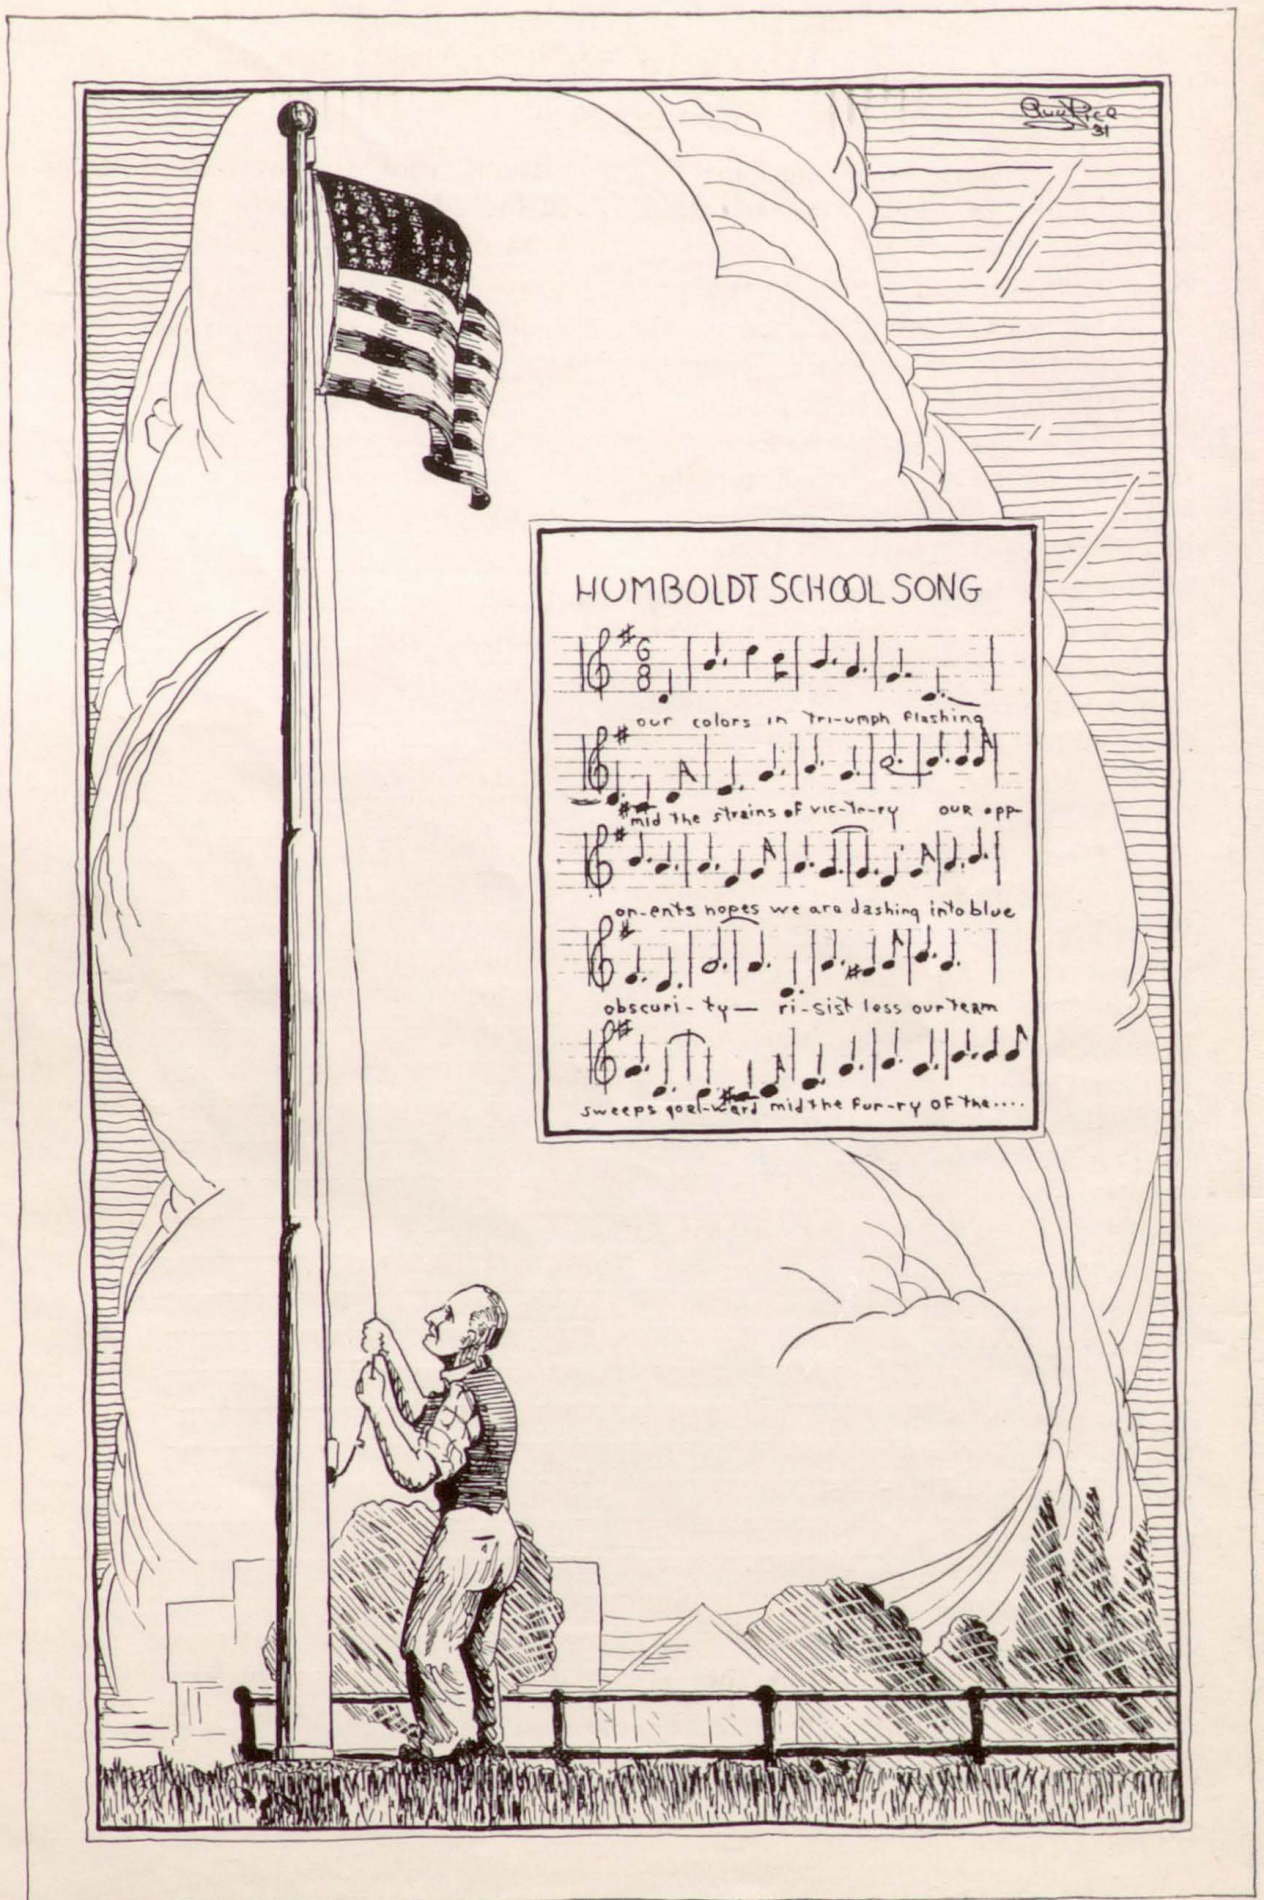 Guy Rice
31
HUMBOLDT SCHOOL SONG
6
8
our colors in tri-umph flashing
mid the strains of vic-to-ry OUR opp-
on-ents hopes we are dashing into blue
obscuri-ty— ri-sist less our team
sweeps goal-ward mid the fur-ry OF the....